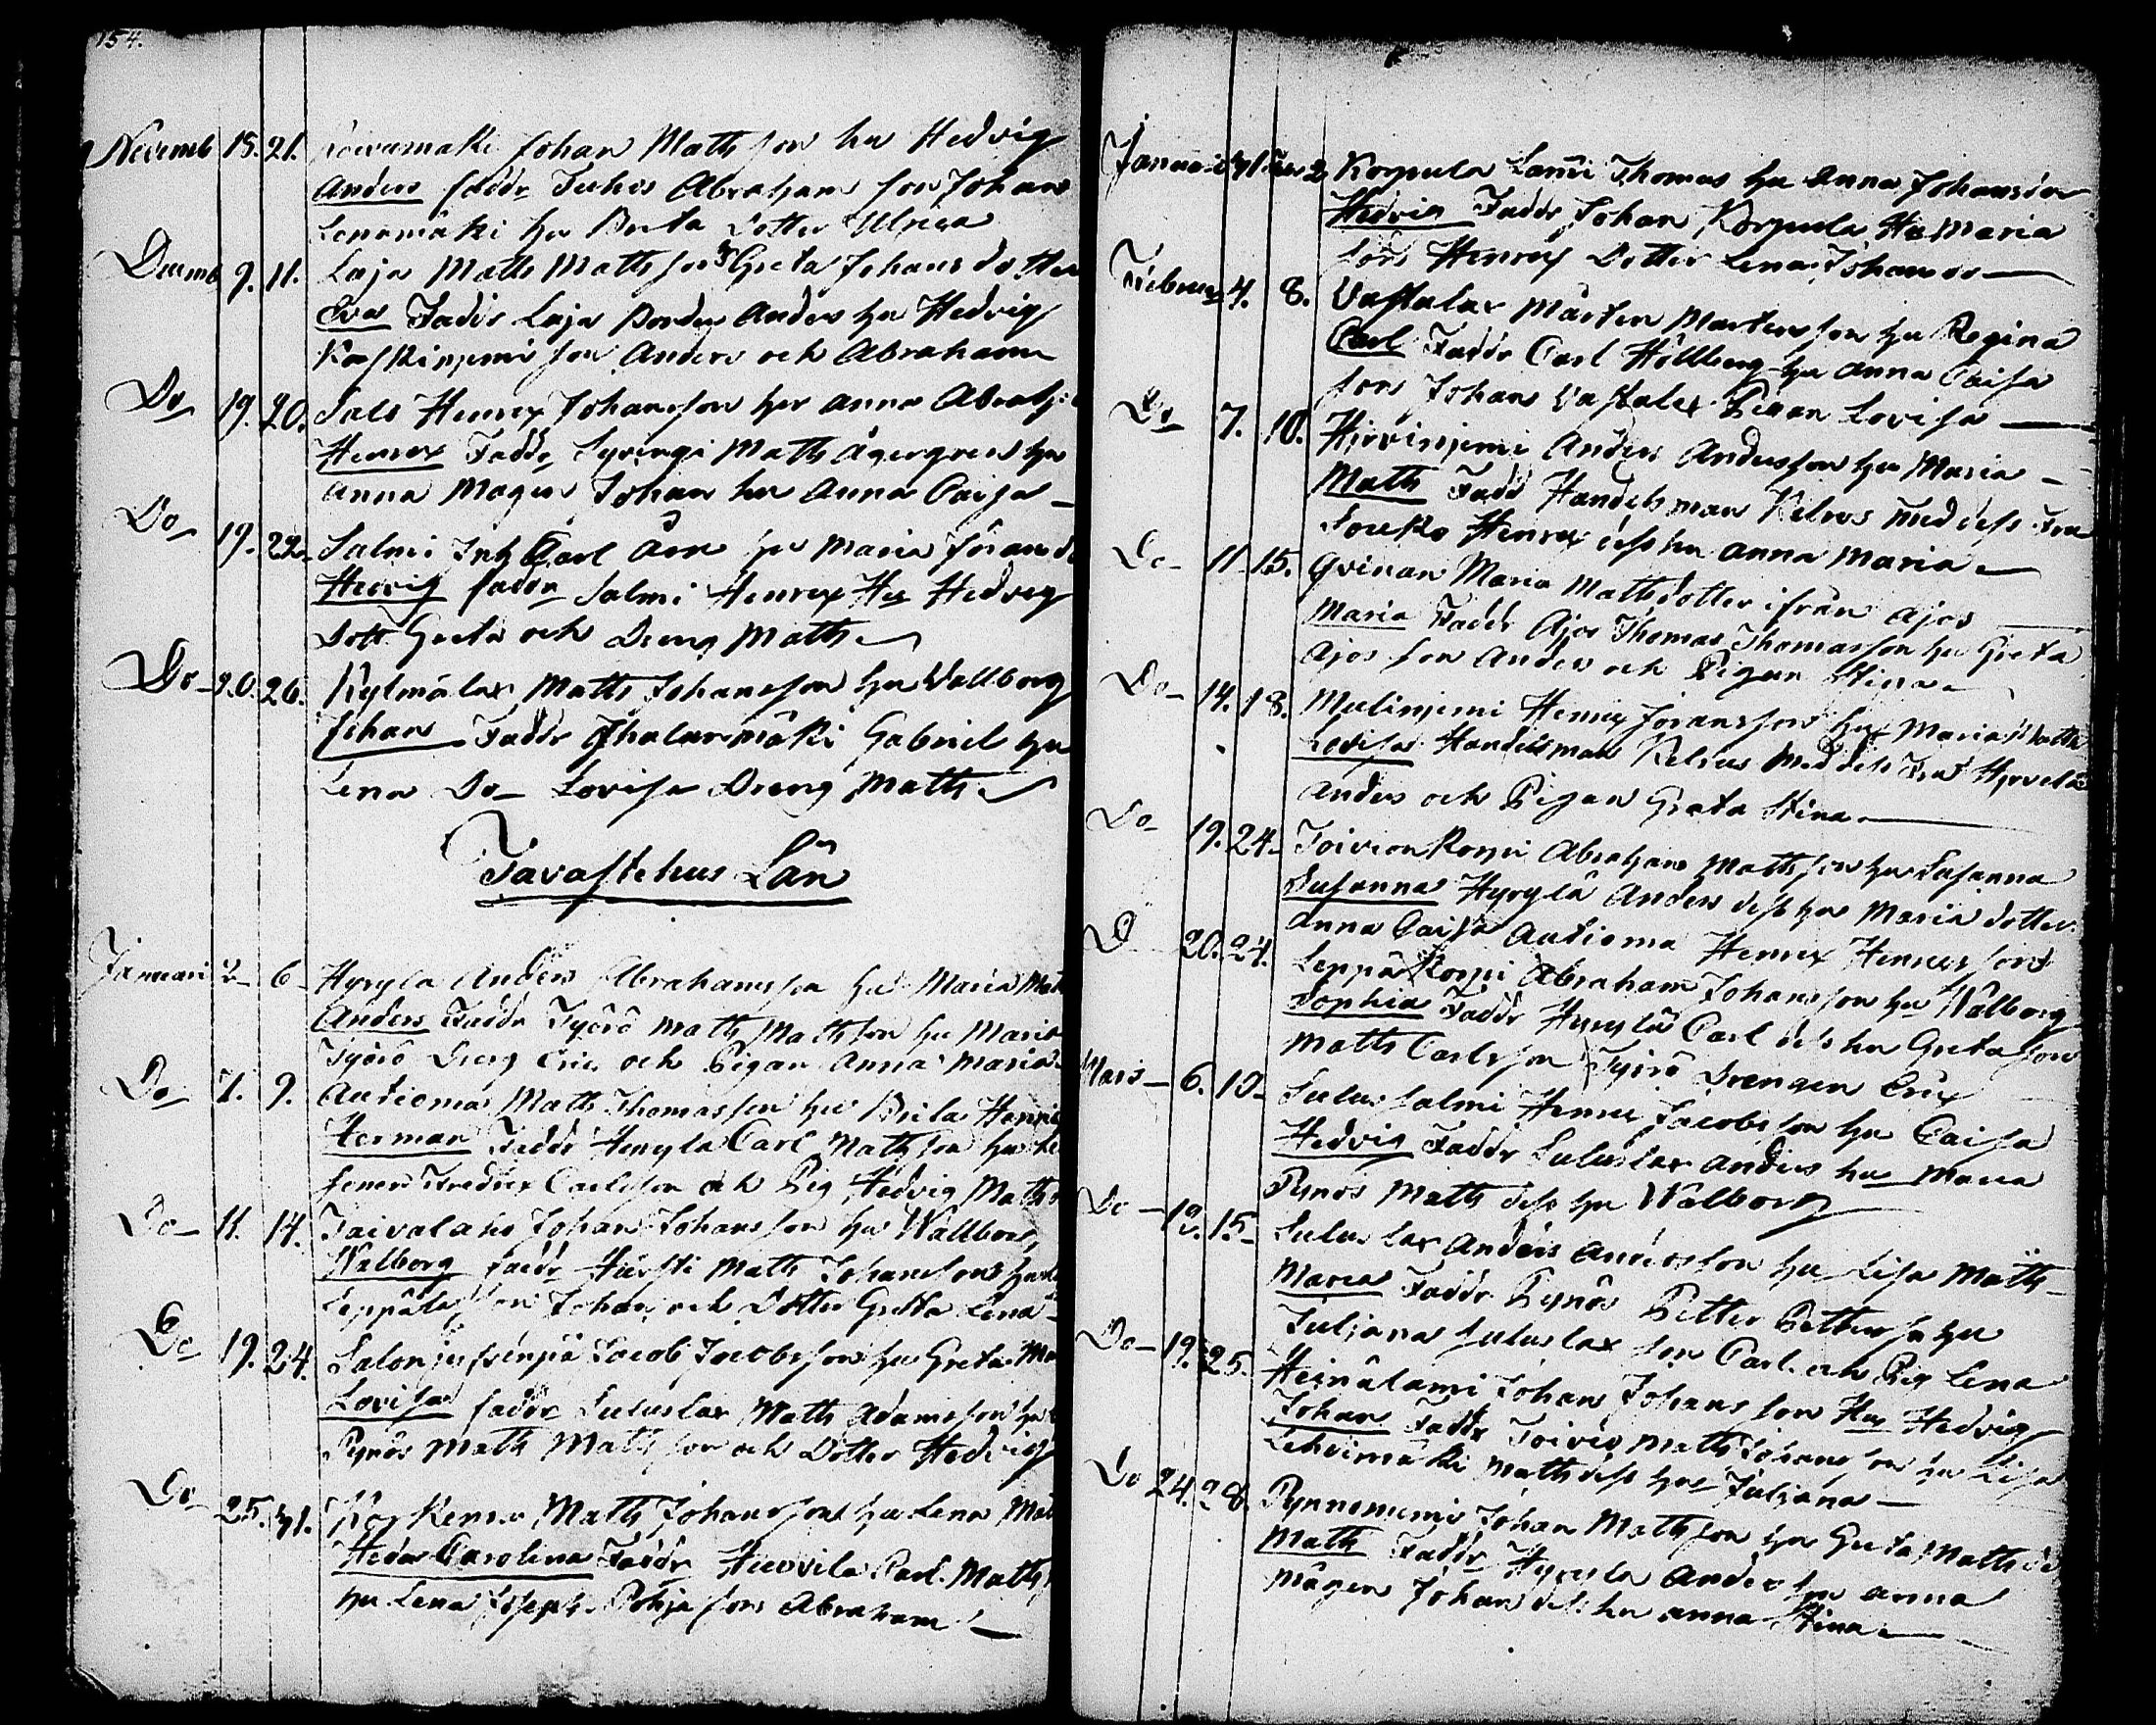 154.
Novemb 15. 21. Johan Matts son hu Hedvig
Anders faddr Juhos Abraham son Johan
Lenamäki hu Brita Dotter Ulrica
Decemb 9. 11. Laja Matts Matts son Greta Johans dotter
Eva Faddr Laja Bonden Anders hu Hedvig
Koskiniemi son Anders och Abraham
Do 19. 20. Salo Henrex Johansson hu Anna Abrah
Henrex Faddr Syrengi Matts Ågergren hu
Anna Mågen Johan hu Anna Caisa
Do 19. 22. Salmi Inh Carl hu Maria
Hedvig faddr Salmi Henrex Hu Hedvig
Dott Greta och Dreng Matts
Do 20. 26. Kylmälax Matts Johansson hu Wallborg
Johan Faddr Ihalaxmäki Gabriel hu
Lena Do Lovisa Dreng Matts
Tavastehus Län
Januari 2 6 Hyryla Anders Abrahamsson hu Maria Matt
Anders Faddr Työrö Matts Mattsson hu Maria
Työrö Dreng Eric och Pigan Anna Maria
Do 7. 9. Autioma Matts Thomasson hu Brita Henric
Herman Faddr Heryla Carl Mattsson hu
sonen Fredrex Carlsson och Pig Hedvig Matts
Do 11. 14. Taivalaho Johan Johansson hu Wallborg
Walborg faddr Hursti Matts Johansson hu
Leppälax son Johan och Dotter Greta Lena
Do 19. 24. Jacob Jacobsson hu Greta Ma
Lovisa faddr Luluslax Matts Adamsson hu
Pynös Matts Matts son och Dotter Hedvig
Do 25. 31. Matts Johansson hu Lena Mat
Heda Carolina Faddr Huovila Carl Matts
hu Lena Joseph Pohja son Abraham
Januari 31 2 Korpula Lami Thomas hu Anna Johansdor
Hedvig Faddr Johan Korpula Hu Maria
son Henrex Dotter Lena Johansdr
Februar 4. 8. Vastalax Mårten Mårtensson hu Regina
Carl Faddr Carl Hällberg hu Anna Caisa
son Johan Vastalex Pigan Lovisa
Do 7. 10. Hirviniemi Anders Andersson hu Maria
Matts Fadd Handelsman Kelrus med dess Fru
Souko Henrex dess hu Anna Maria
Do 11. 15. Qvinan Maria Mattsdotter ifrån Ajos
Maria Faddr Ajos Thomas Thomasson hu Greta
Ajos son Anders och Pigan Stina
Do 14. 18. Mulinjemi Henrex Joransson hu Maria Matts
Lovisa Handelsman Kelrus Med dess Fru Hyrvelä
Anders och Pigan Greta Stina
Do 19. 24. Toivion Korpi Abraham Matts son hu Susanna
Susanna Hyrylä Anders dess hu Maria dotter
Anna Caisa Autioma Henrex Henrexson
D 20. 24. Leppäkorpi Abraham Johansson hu Wålborg
Sophia Faddr Hyrylä Carl dess hu Greta son
Matts Carlsson Työrö Drengen Erix
Mars 6. 10 Lulus salmi Henrex Jacobsson hu Caisa
Hedvig Faddr Luluslax Anders hu Maria
Pynös Matts dess hu Wålborg
Do 12. 15 Lulus lax Anders Andersson hu Lisa Matts
Maria Faddr Pynös Petter Petters hu
Juljana luluslax son Carl och Pig Lena
Do 19. 25. Heinälami Johan Johans son Hu Hedvig
Johan Faddr Toivio Matts Johans son hu Lisa
Lehoimäki Matts dess hu Juljana
Do 24. 28. Pynnoniemi Johan Matts son hu Greta Matts do
Matts Faddr Hyryla Anders hu Anna
Mågen Johan dess hu Anna Stina